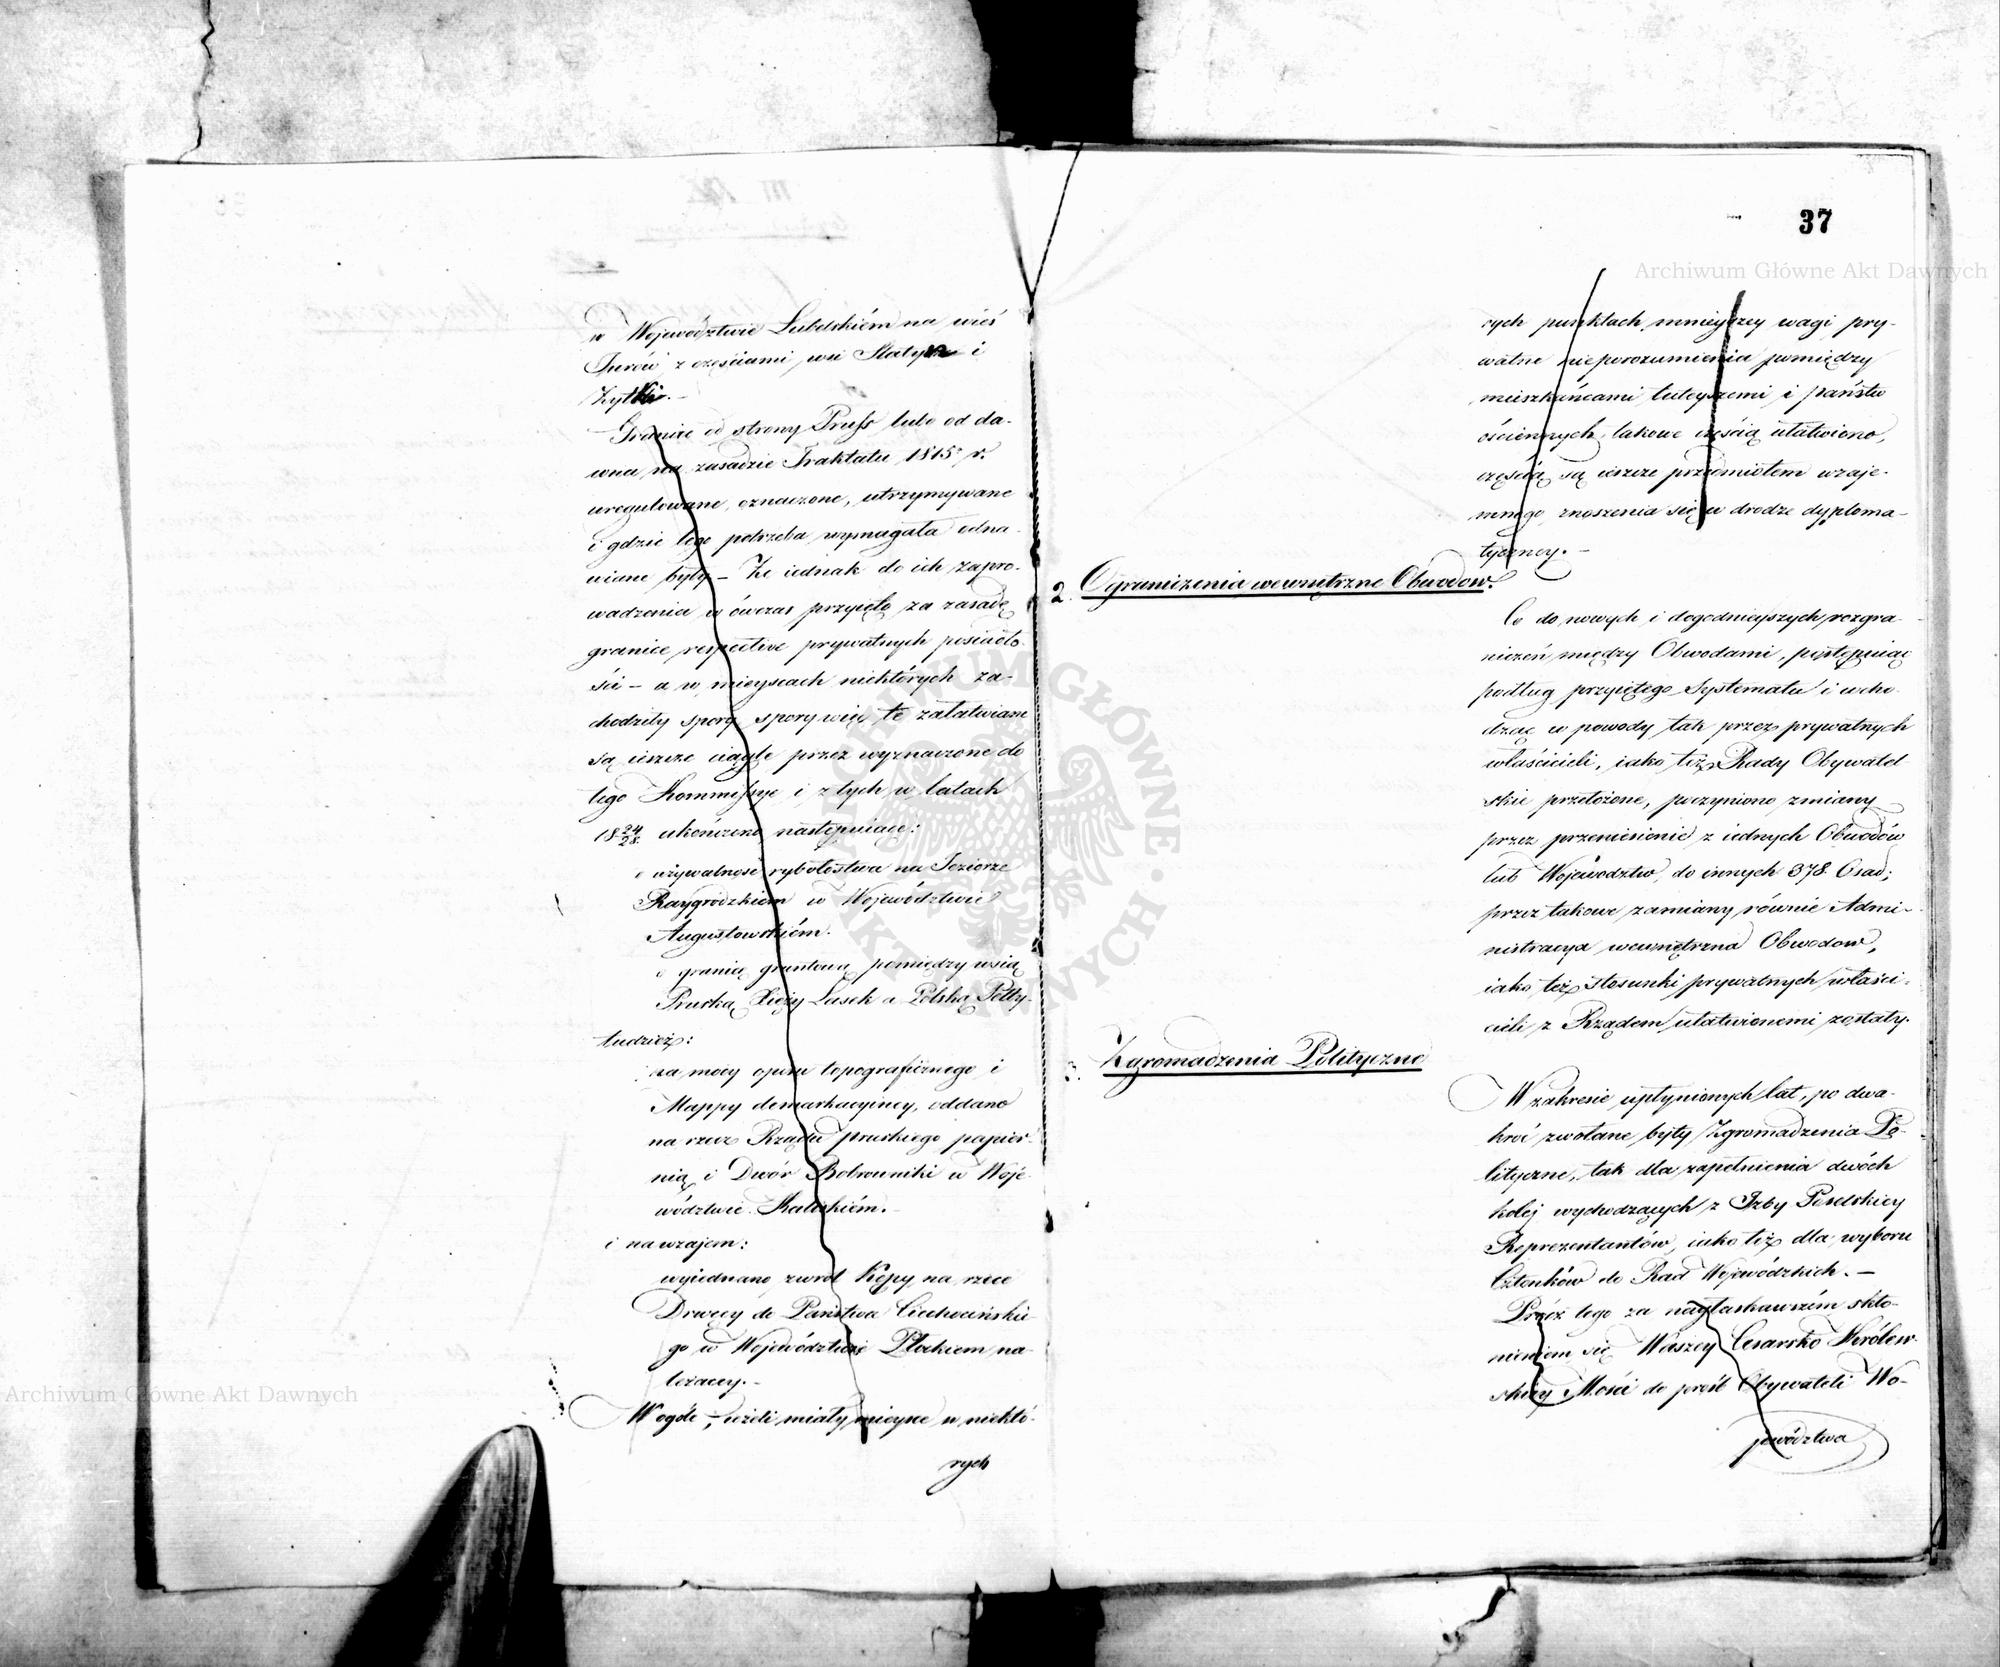 w Województwie Lubelskiém na wieś
Jurów z częściami wsi Staty i
Żyłki.-
Granice od strony Pruss lubo od da-
wna na zasadzie Traktatu 1815º r.
uregulowane, oznaczone, utrzymywane
i gdzie tego potrzeba wymagała odna-
wiane były - Że iednak do ich zapro-
wadzenia w ówczas przyięto za zasadę
granice respective prywatnych posiadło-
ści - a w mieyscach niektórych za-
chodziły spory, spory więc te załatwiane
są ieszcze ciągle przez wyznaczone do
tego Kommissye i z tych w latach
18 24/28. ukończono następuiące:
o używalność rybołóstwa na Jeziorze
Raygrodzkiem w Województwie
Augustowskiém.
o granicę gruntową pomiędzy wsią
Pruską Lasek a Polską
tudzież:
za mocy opisu topograficznego i
Mappy demarkacyiney, oddano
na rzecz Rządu pruskiego papier-
nią i Dwór Bobrowniki w Woje-
wództwie Kaliskiém.-
i nawzajem:
wyiednano zwrot Kępy na rzece
Drwęcy do Państwa Ciechocińskie-
go w Województwie Płockiem na-
leżacey.-
W ogóle, ieżeli miały mieysce w niektó-
rych
37
rych punktach mnieyszey wagi pry-
watne nieporozumienia pomiędzy
mieszkańcami tuteyszemi i państw
ościennych, takowe częścią ułatwiono,
częścią są ieszcze przedmiotem wzaje-
mnego znoszenia się w drodze dyploma-
tyczney.-
2. Ograniczenia wewnętrzne Obwodow.
Co do nowych i dogodniejszych rozgra-
niczeń między Obwodami, postępuiąc
podług przyiętego Systematu i wcho-
dząc w powody tak przez prywatnych
właścicieli, iako też Rady Obywatel-
skie przełożone, poczyniono zmiany
przez przeniesienie z iednych Obwodów
lub Województw, do innych 378. Osad;
przez takowe zamiany równie Admi-
nistracya wewnętrzna Obwodow,
iako też stosunki prywatnych właści-
cieli z Rządem ułatwionemi zostały.
3. Zgromadzenia Polityczne
W zakresie upłynionych lat, po dwa-
kroć zwołane były Zgromadzenia Po-
lityczne, tak dla zapełnienia dwóch
koléj wychodzących z Izby Poselskiey
Reprezentantów, iako też dla wyboru
Członków do Rad Wojewódzkich.-
Prócz tego za nayłaskawszém skło-
nieniem się Waszey Cesarsko Królew-
skiey Mości do prośb Obywateli Wo-
jewództwa
Archiwum Główne Akt Dawnych
Archiwum Główne Akt Dawnych
ARCHIWUM GŁÓWNE AKT DAWNYCH